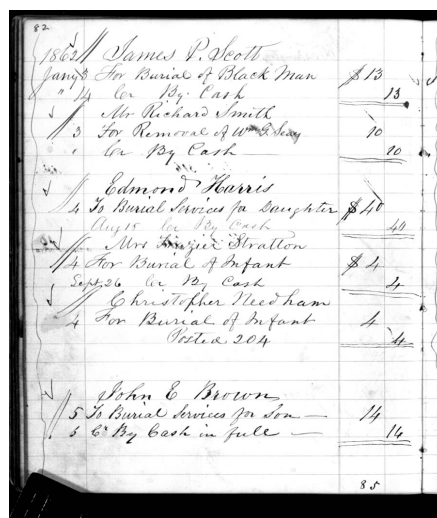 82
1862 James P. Scott
Jany 3 For Burial of Black Man $13
" 14 Cr By Cash 13
Mr Richard Smith
3 For Removal of Wm G. 10
" Cr By Cash 10
Edmond Harris
4 To Burial Services for Daughter $40
Aug 15 Cr By Cash 40
Mrs Stratton
4 For Burial of Infant $4
Sept 26 Cr By Cash 4
Christopher Needham
4 For Burial of Infant 4
Posted 204 4
John E Brown
5 To Burial Services for Son — 14
5 Cr By Cash in full — 14
85